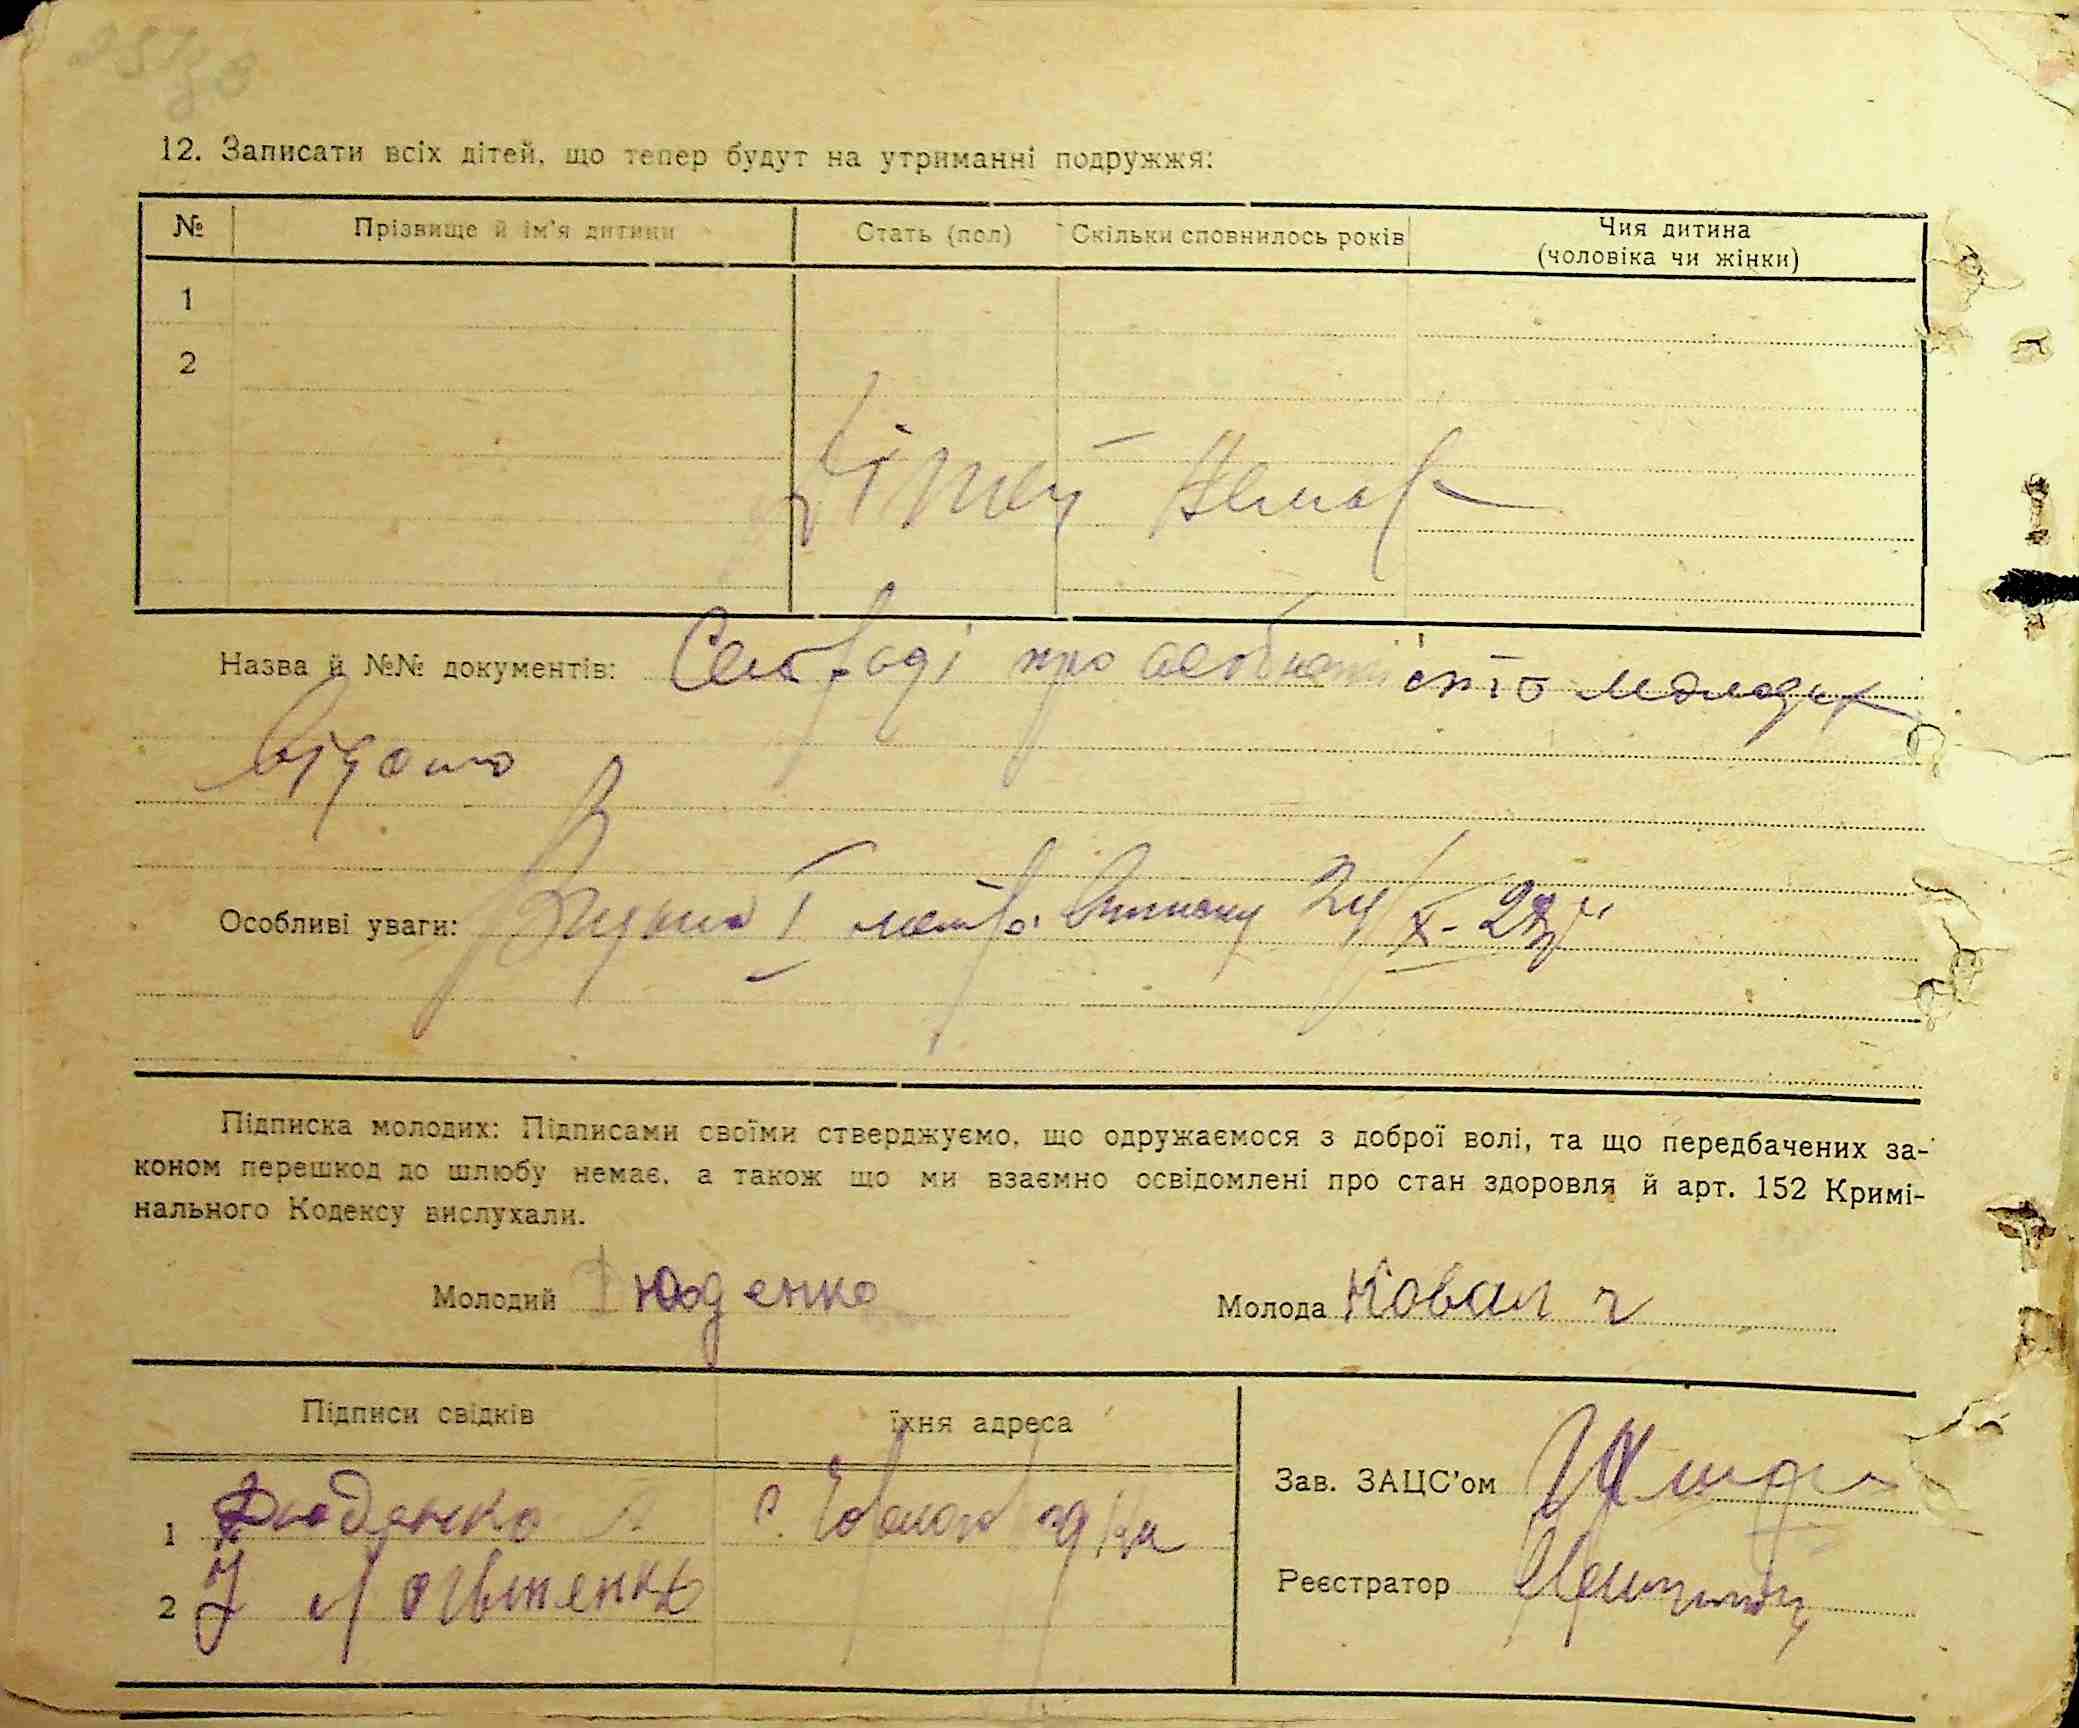 12. Записати всіх дітей, що тепер будут на утриманні подружжя:
№ Прізвище й ім'я дитини Стать (пол) Скільки сповнилось років Чия дитина (чоловіка чи жінки)
1
2
Дітей немає
Назва й №№ документів: про молодих
видано
Особливі уваги: Видана I метр. виписку 24/X-28р
Підписка молодих: Підписами своїми стверджуємо, що одружаємося з доброї волі, та що передбачених за-
коном перешкод до шлюбу немає, а також що ми взаємно освідомлені про стан здоровля й арт. 152 Кримі-
нального Кодексу вислухали.
Молодий Дюденко Молода Ковал г
Підписи свідків їхня адреса
Зав. ЗАЦС'ом
1 Дюденко с.
Реєстратор
2